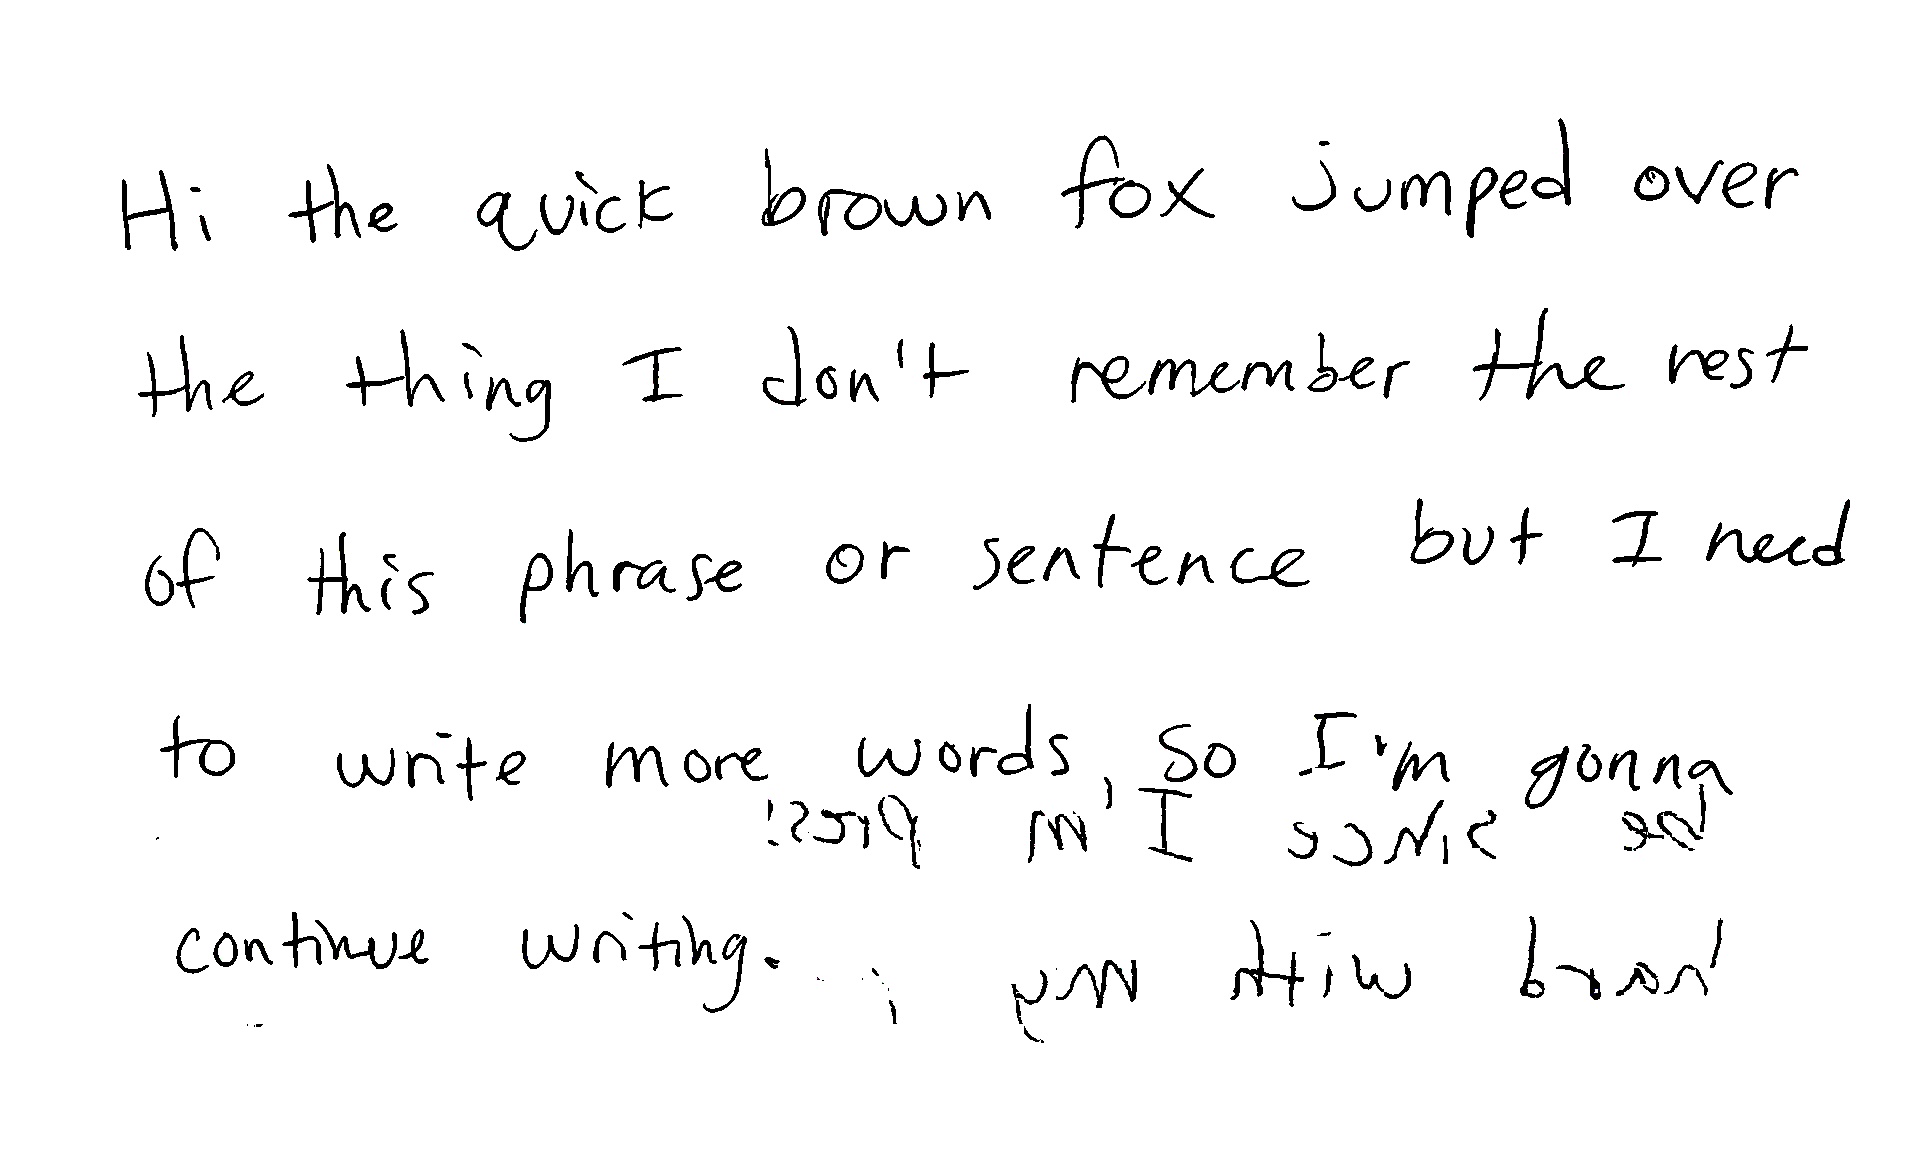 Hi the quick brown fox jumped over
the thing I don't remember the rest
of this phrase or sentence but I need
to write more words, so I'm gonna
be since I'm
continue writing.
hard with my